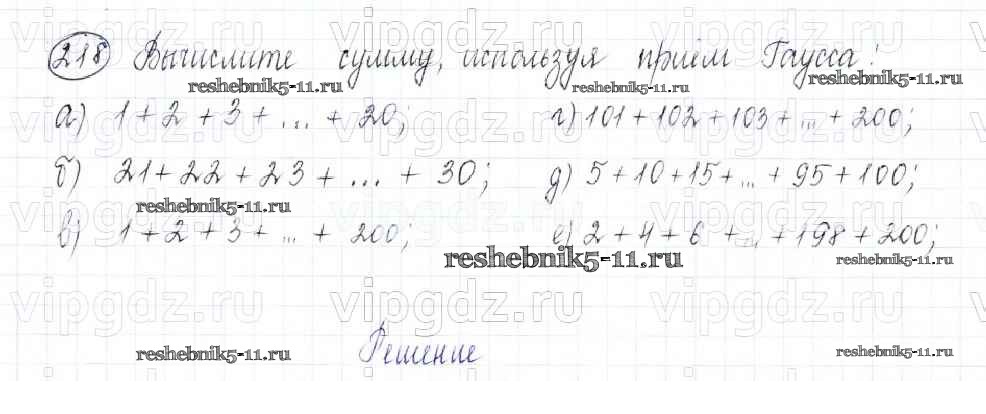 218 Вычислите сумму, используя приём Гаусса:
reshebnik5-11.ru reshebnik5-11.ru reshebnik5-11.ru
а) 1 + 2 + 3 + ... + 20; г) 101 + 102 + 103 + ... + 200;
б) 21 + 22 + 23 + ... + 30; д) 5 + 10 + 15 + ... + 95 + 100;
reshebnik5-11.ru
в) 1 + 2 + 3 + ... + 200; е) 2 + 4 + 6 + ... + 198 + 200;
reshebnik5-11.ru reshebnik5-11.ru
vipgdz.ru vipgdz.ru vipgdz.ru
Решение
reshebnik5-11.ru reshebnik5-11.ru